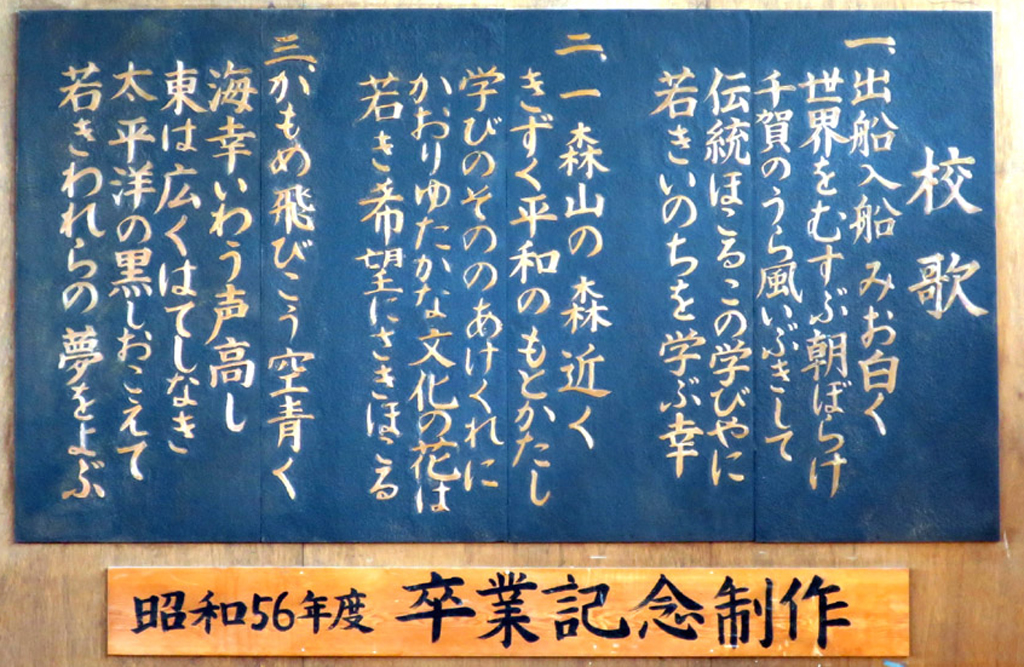 校歌
一、出船入船 みお白く
世界をむすぶ朝ぼらけ
千賀のうら風いぶきして
伝統ほこるこの学びやに
若きいのちを学ぶ幸
二、一森山の 森近く
きずく平和のもとかたし
学びのそののあけくれに
かおりゆたかな文化の花は
若き希望にさきほこる
三、かもめ飛びこう空青く
海幸いわう声高し
東は広くはてしなき
太平洋の黒しおこえて
若きわれらの夢をよぶ
昭和56年度 卒業記念制作